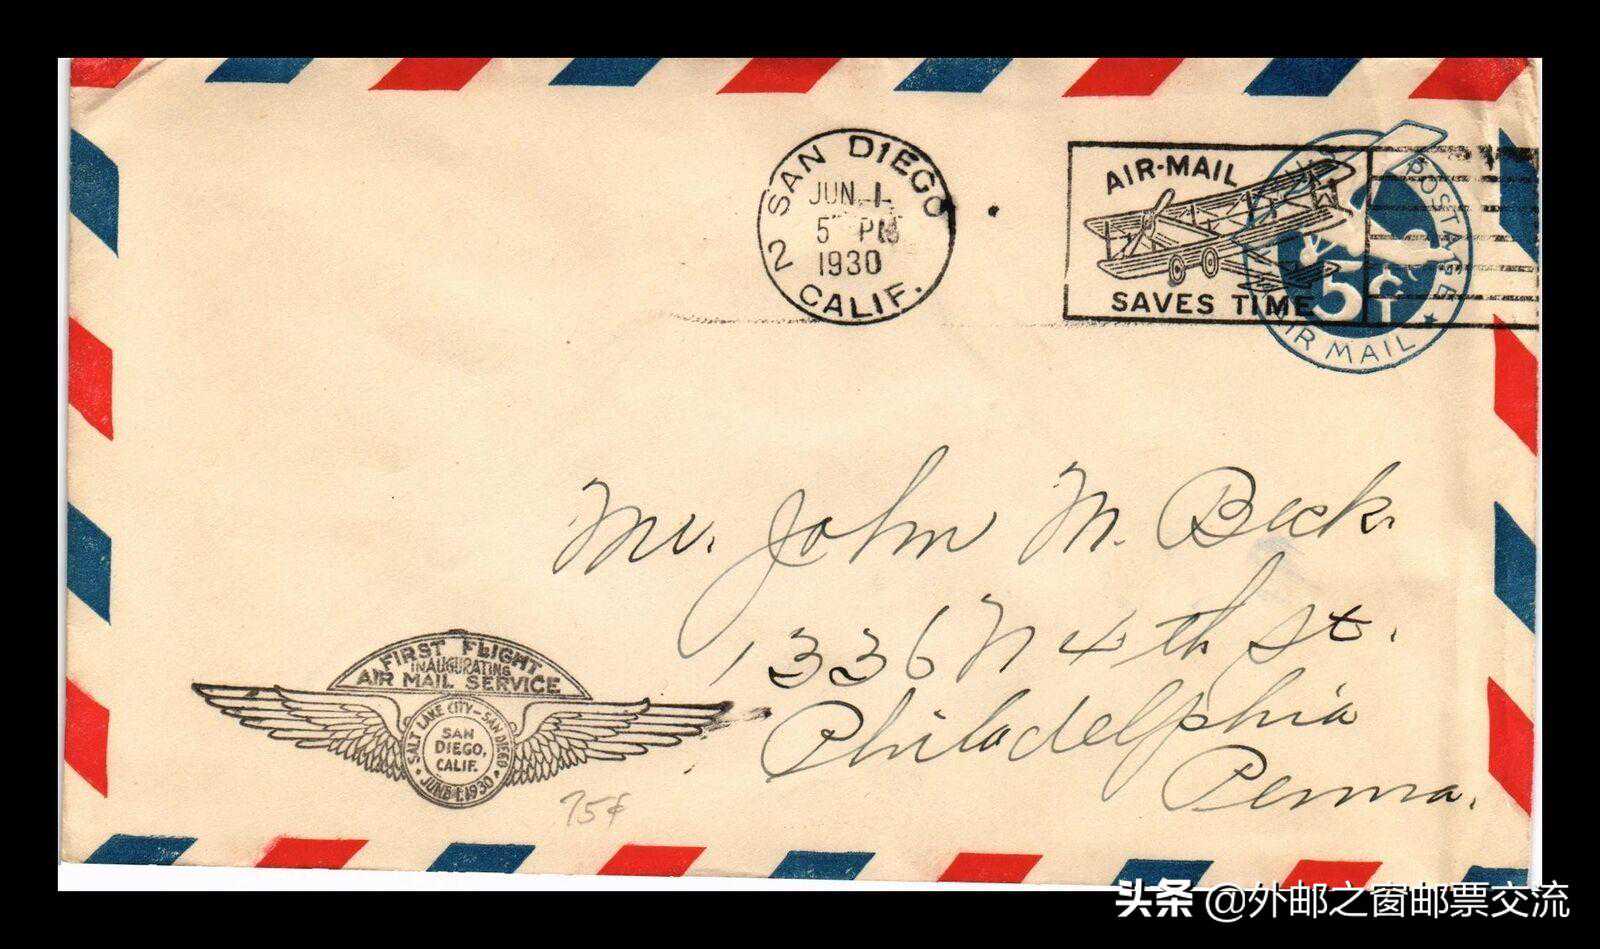 SAN DIEGO
JUN 1
5 PM
1930
2 CALIF.
AIR-MAIL
SAVES TIME
POSTAGE
5¢
AIR MAIL
Mr. John M. Beck
1336 N 4th St.
Philadelphia
Penna.
FIRST FLIGHT
INAUGURATING
AIR MAIL SERVICE
SALT LAKE CITY-SAN DIEGO
SAN
DIEGO,
CALIF.
JUNE 1, 1930
75¢
头条 @外邮之窗邮票交流